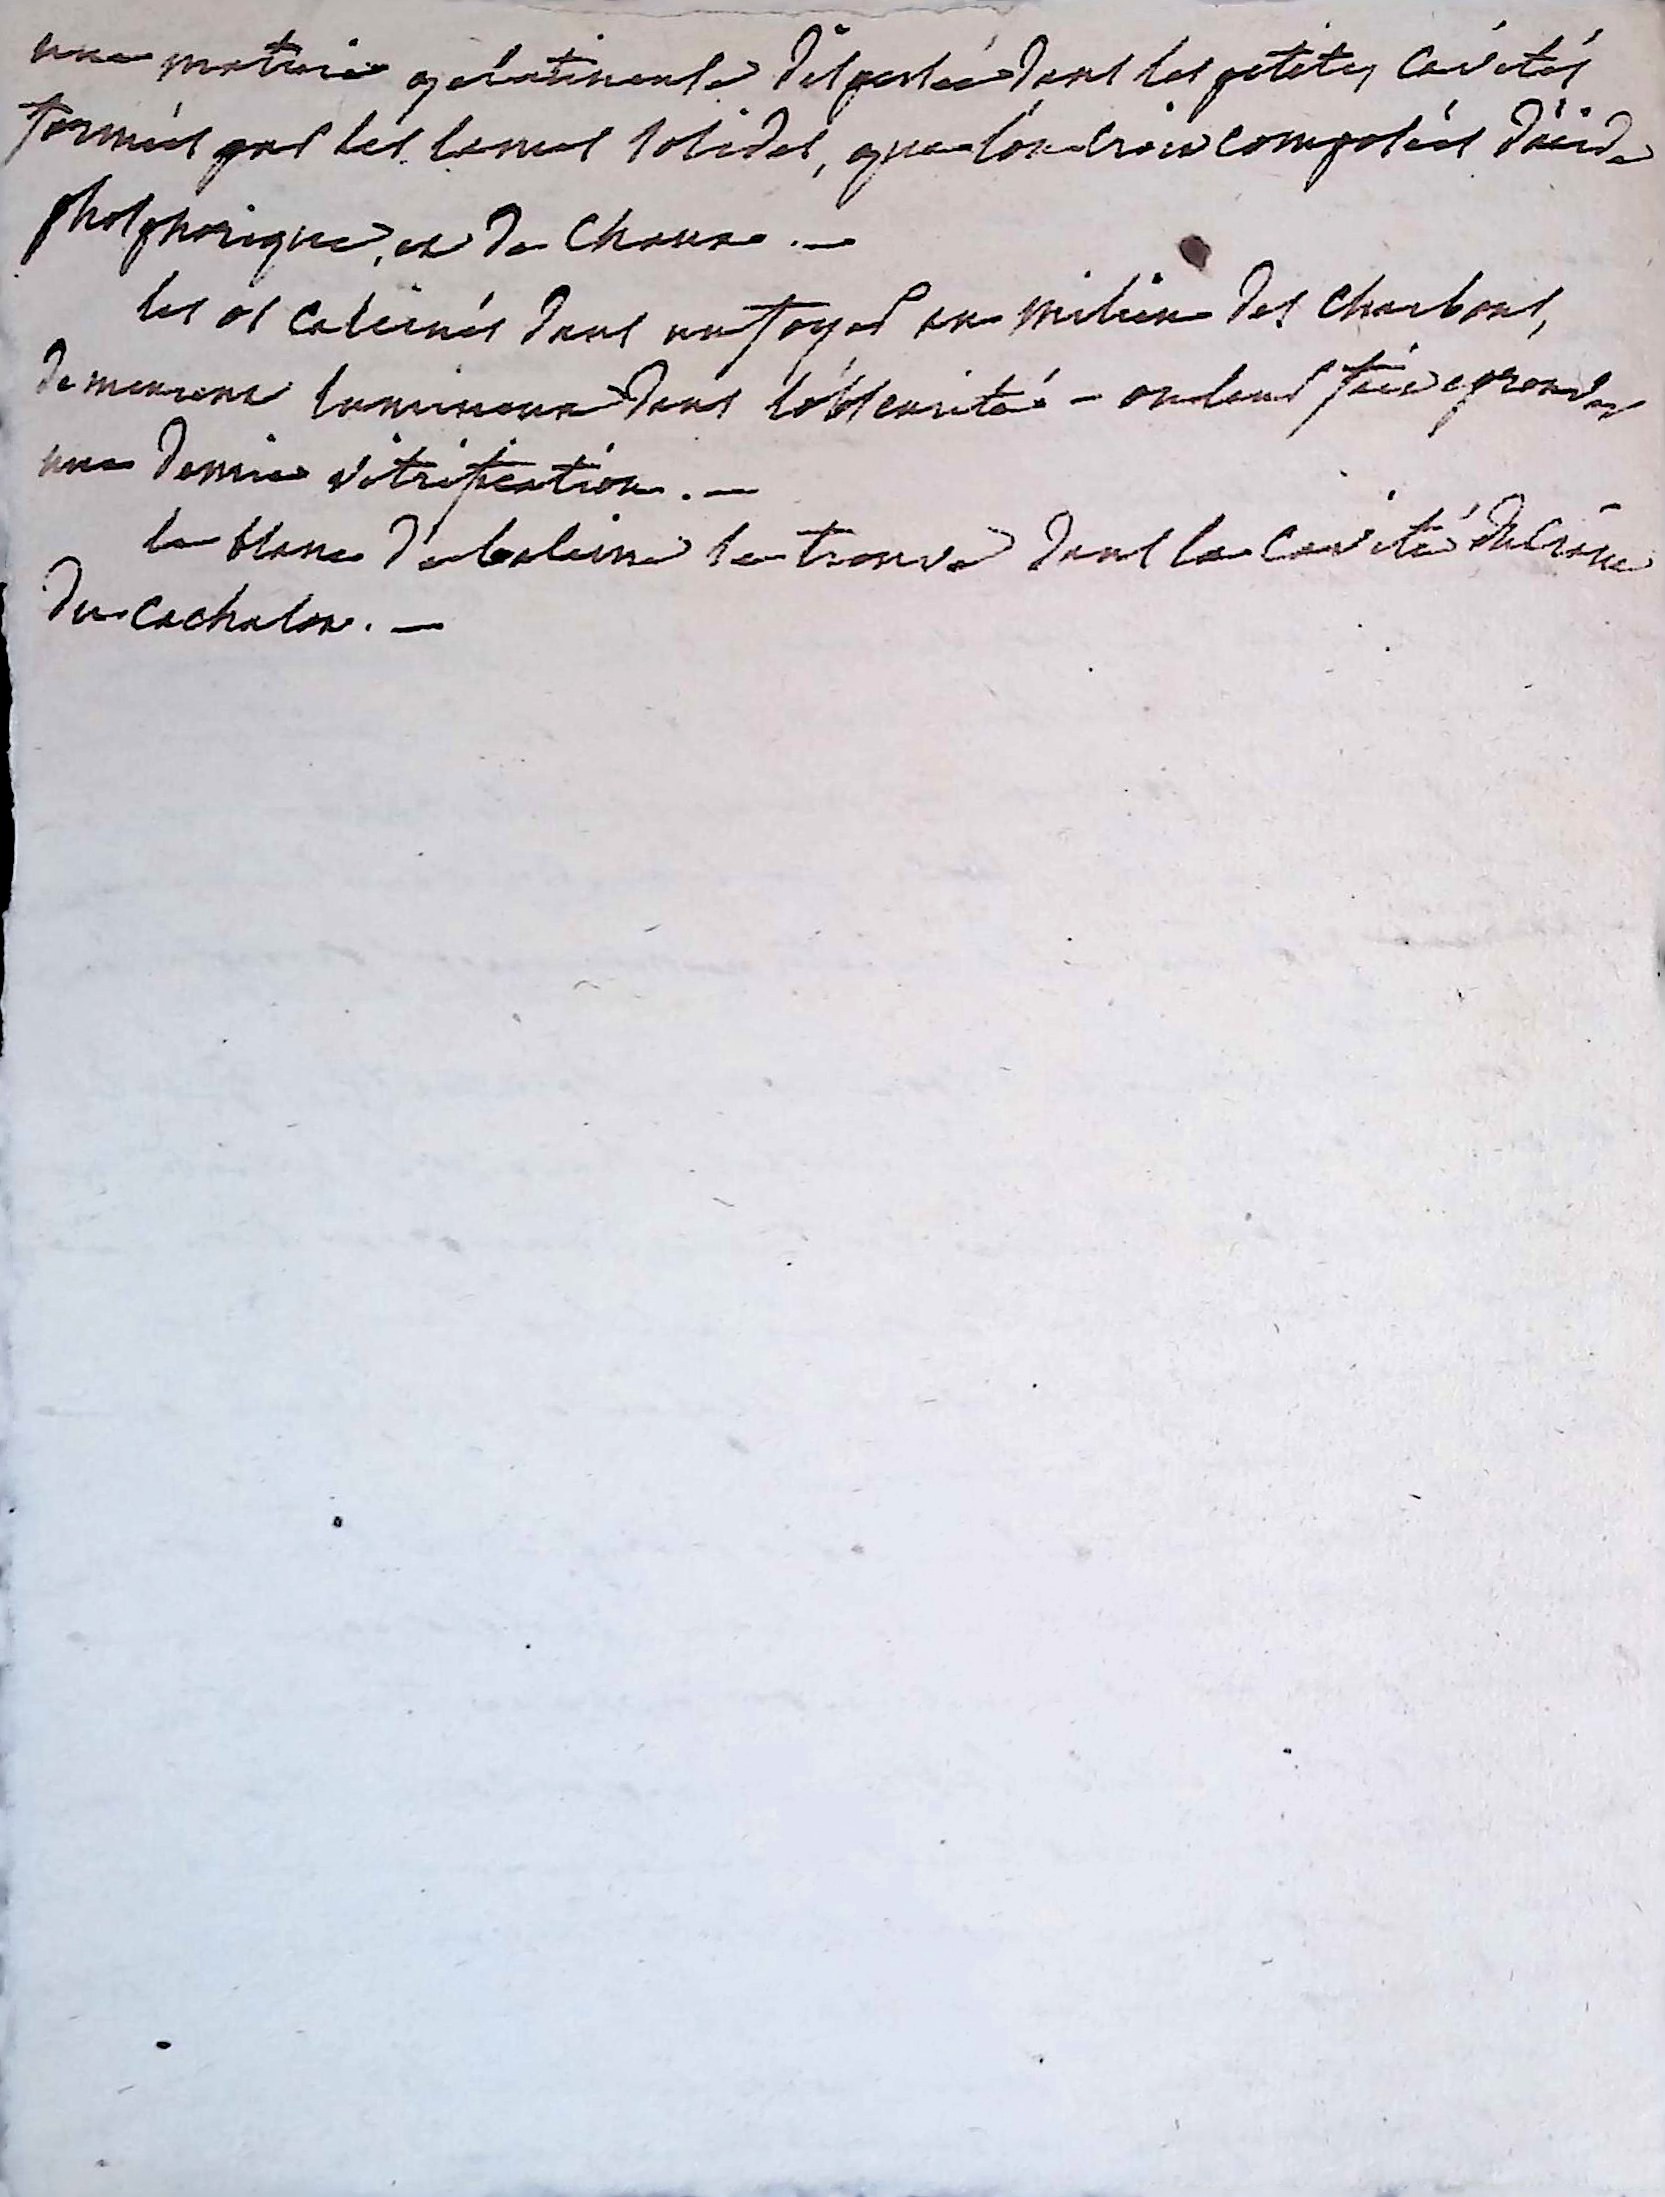 une matiere gelatineuse dispersée dans les petites cavités
formées par les lames solides, que l'on croit composées d'acide
phosphorique, et de chaux. —
les os calcinés dans un foyer au milieu des charbons,
demeurent lumineux dans l'obscurité - on leur fait eprouver
une demie vitrification. —
le blanc de baleine se trouve dans la cavité du crâne
du cachalot. —